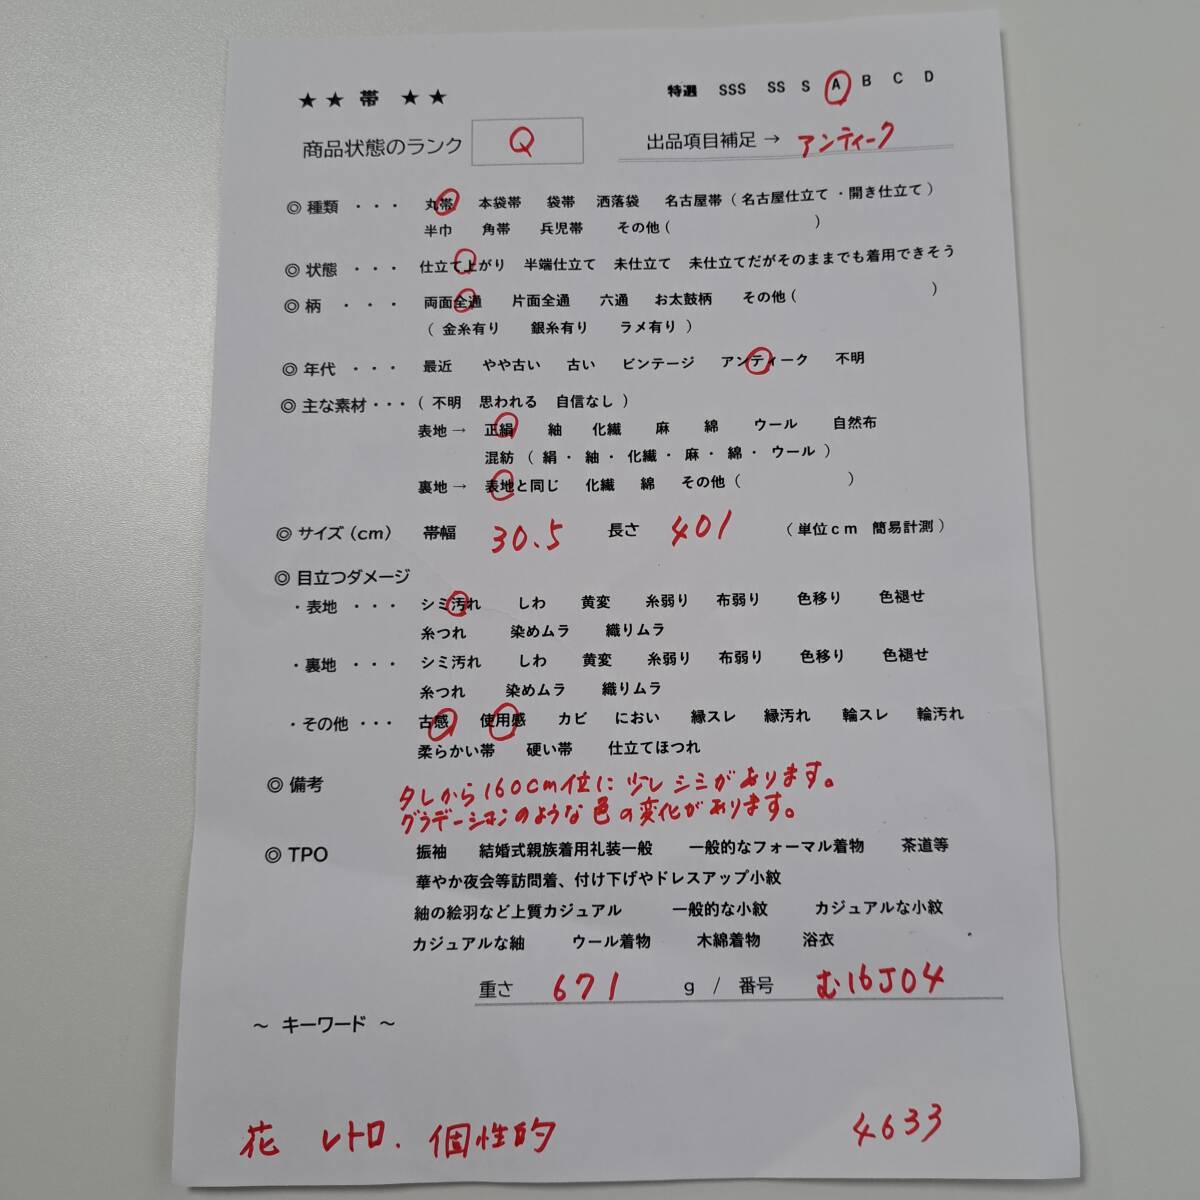 ★★ 帯 ★★
特選 SSS SS S A B C D
商品状態のランク Q 出品項目補足 → アンティーク
◎ 種類 ・・・ 丸帯 本袋帯 袋帯 洒落袋 名古屋帯（名古屋仕立て・開き仕立て）
半巾 角帯 兵児帯 その他（ ）
◎ 状態 ・・・ 仕立て上がり 半端仕立て 未仕立て 未仕立てだがそのままでも着用できそう
◎ 柄 ・・・ 両面全通 片面全通 六通 お太鼓柄 その他（ ）
（金糸有り 銀糸有り ラメ有り）
◎ 年代 ・・・ 最近 やや古い 古い ビンテージ アンティーク 不明
◎ 主な素材・・・（不明 思われる 自信なし）
表地 → 正絹 紬 化繊 麻 綿 ウール 自然布
混紡（絹・紬・化繊・麻・綿・ウール）
裏地 → 表地と同じ 化繊 綿 その他（ ）
◎ サイズ（cm） 帯幅 30.5 長さ 401 （単位cm 簡易計測）
◎ 目立つダメージ
・表地 ・・・ シミ汚れ しわ 黄変 糸弱り 布弱り 色移り 色褪せ
糸つれ 染めムラ 織りムラ
・裏地 ・・・ シミ汚れ しわ 黄変 糸弱り 布弱り 色移り 色褪せ
糸つれ 染めムラ 織りムラ
・その他 ・・・ 古感 使用感 カビ におい 縁スレ 縁汚れ 輪スレ 輪汚れ
柔らかい帯 硬い帯 仕立てほつれ
◎ 備考 タレから160cm位に少しシミがあります。
グラデーションのような色の変化があります。
◎ TPO 振袖 結婚式親族着用礼装一般 一般的なフォーマル着物 茶道等
華やか夜会等訪問着、付け下げやドレスアップ小紋
紬の絵羽など上質カジュアル 一般的な小紋 カジュアルな小紋
カジュアルな紬 ウール着物 木綿着物 浴衣
重さ 671 g / 番号 む16J04
～ キーワード ～
花 レトロ. 個性的 4633